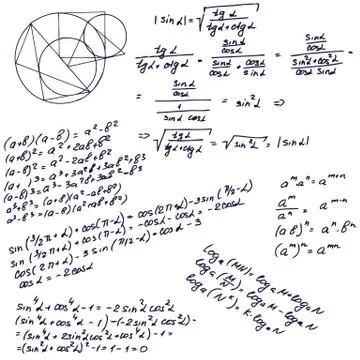 |sin α| = √(tg α / (tg α + ctg α))
tg α / (tg α + ctg α) = (sin α / cos α) / (sin α / cos α + cos α / sin α) = (sin α / cos α) / ((sin² α + cos² α) / (cos α sin α)) =
= (sin α / cos α) / (1 / (sin α cos α)) = sin² α ⇒
⇒ √(tg α / (tg α + ctg α)) = √(sin² α) = |sin α|
(a+b)(a-b) = a² - b²
(a+b)² = a² + 2ab + b²
(a-b)² = a² - 2ab + b²
(a+b)³ = a³ + 3a²b + 3ab² + b³
(a-b)³ = a³ - 3a²b + 3ab² - b³
a³ + b³ = (a+b)(a² - ab + b²)
a³ - b³ = (a-b)(a² + ab + b²)
sin(3/2π + α) + cos(π - α) = cos(2π - α) - 3 sin(π/2 - α)
sin(3/2π + α) + cos(π - α) = -cos α - cos α = -2 cos α
cos(2π - α) - 3 sin(π/2 - α) = cos α - 3
cos α = -2 cos α
aᵐ aⁿ = aᵐ⁺ⁿ
aᵐ / aⁿ = aᵐ⁻ⁿ
(ab)ⁿ = aⁿ · bⁿ
(aᵐ)ⁿ = aᵐⁿ
logₐ(MN) = logₐ M + logₐ N
logₐ(M/N) = logₐ M - logₐ N
logₐ(Nᵏ) = k · logₐ N
sin⁴ α + cos⁴ α - 1 = -2 sin² α cos² α
(sin⁴ α + cos⁴ α - 1) - (-2 sin² α cos² α) =
= (sin⁴ α + 2 sin² α cos² α + cos⁴ α) - 1 =
= (sin² α + cos² α)² - 1 = 1 - 1 = 0